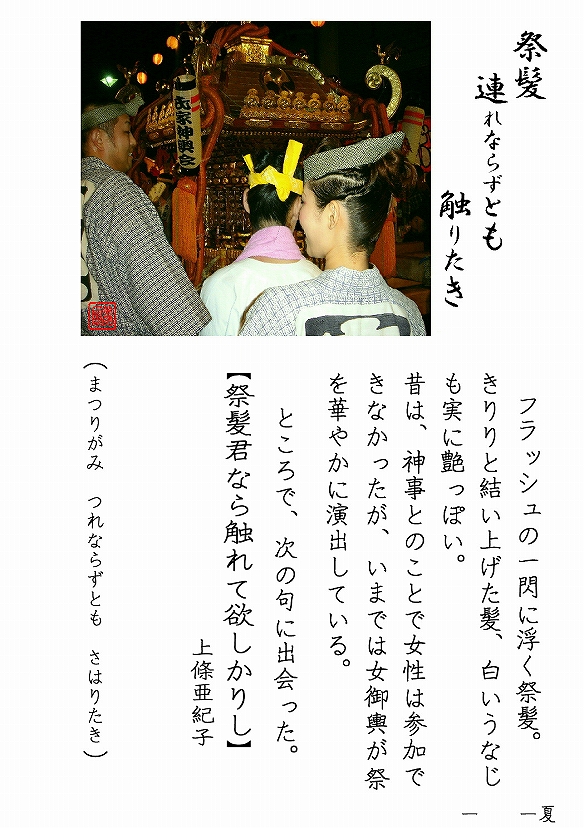 祭髪
連れならずとも
触りたき
フラッシュの一閃に浮く祭髪。
きりりと結い上げた髪、白いうなじ
も実に艶っぽい。
昔は、神事とのことで女性は参加で
きなかったが、いまでは女御輿が祭
を華やかに演出している。
ところで、次の句に出会った。
【祭髪君なら触れて欲しかりし】
上條亜紀子
（まつりがみ　つれならずとも　さはりたき）
夏
一　一